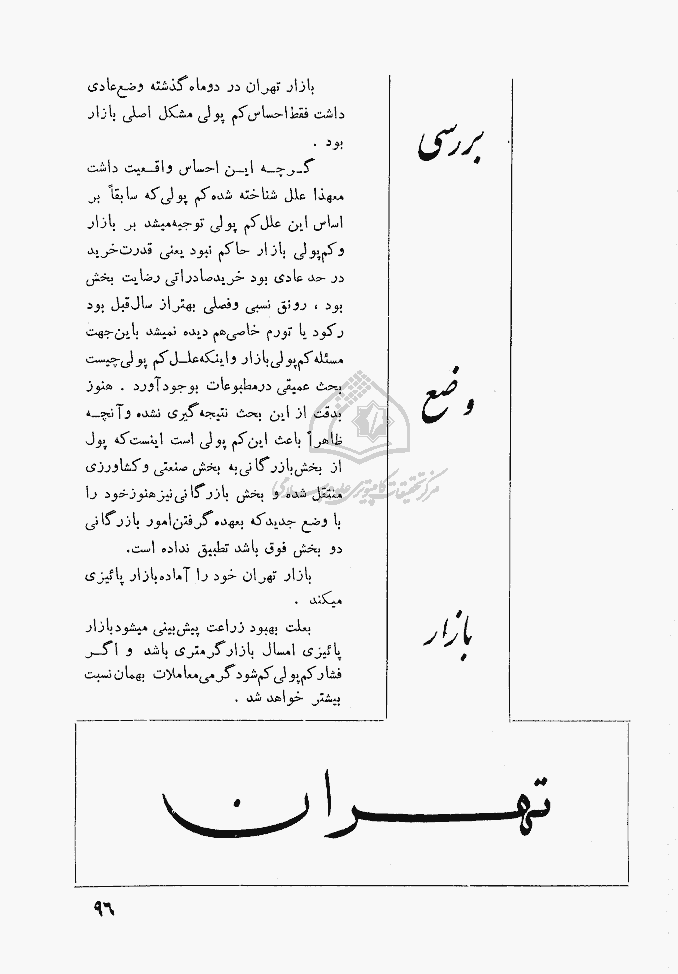 بررسی
وضع
بازار
تهران
بازار تهران در دوماه گذشته وضع عادی
داشت فقط احساس کم پولی مشکل اصلی بازار
بود .
گرچه این احساس واقعیت داشت
معهذا علل شناخته شده کم پولی که سابقاً بر
اساس این علل کم پولی توجیه میشد بر بازار
وکم پولی بازار حاکم نبود یعنی قدرت خرید
در حد عادی بود خرید صادراتی رضایت بخش
بود ، رونق نسبی وفصلی بهتر از سال قبل بود
رکود یا تورم خاصی هم دیده نمیشد باین جهت
مسئله کم پولی بازار واینکه علل کم پولی چیست
بحث عمیقی در مطبوعات بوجود آورد . هنوز
بدقت از این بحث نتیجه گیری نشده وآنچه
ظاهراً باعث این کم پولی است اینست که پول
از بخش بازرگانی به بخش صنعتی وکشاورزی
منتقل شده و بخش بازرگانی نیز هنوز خود را
با وضع جدید که بعهده گرفتن امور بازرگانی
دو بخش فوق باشد تطبیق نداده است.
بازار تهران خود را آماده بازار پائیزی
میکند .
بعلت بهبود زراعت پیش بینی میشود بازار
پائیزی امسال بازار گرمتری باشد و اگر
فشار کم پولی کم شود گرمی معاملات بهمان نسبت
بیشتر خواهد شد .
مرکز تحقیقات کامپیوتری علوم اسلامی
۹۶